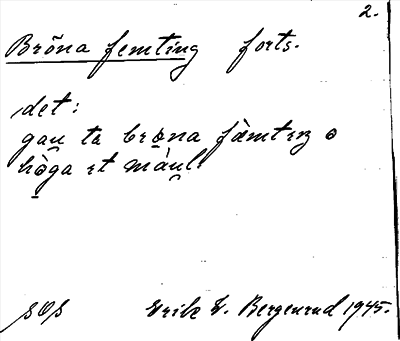 2.
Bröna femting forts.
det:
gau̯ ta bro̤na fàmtıŋ o
hò̤ga ɪt màu̯l
SOS Erik O. Bergenrud 1945.